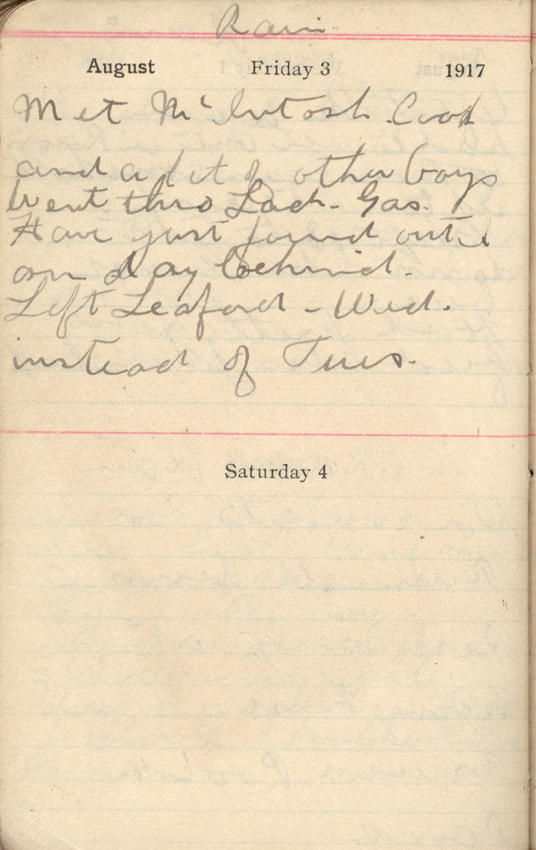 Rain
August Friday 3 1917
Met McIntosh. Cook
and a lot of other boys
Went thro Lach. Gas.
Have just found out
am day behind.
Left Seaford - Wed.
instead of Tues.
Saturday 4